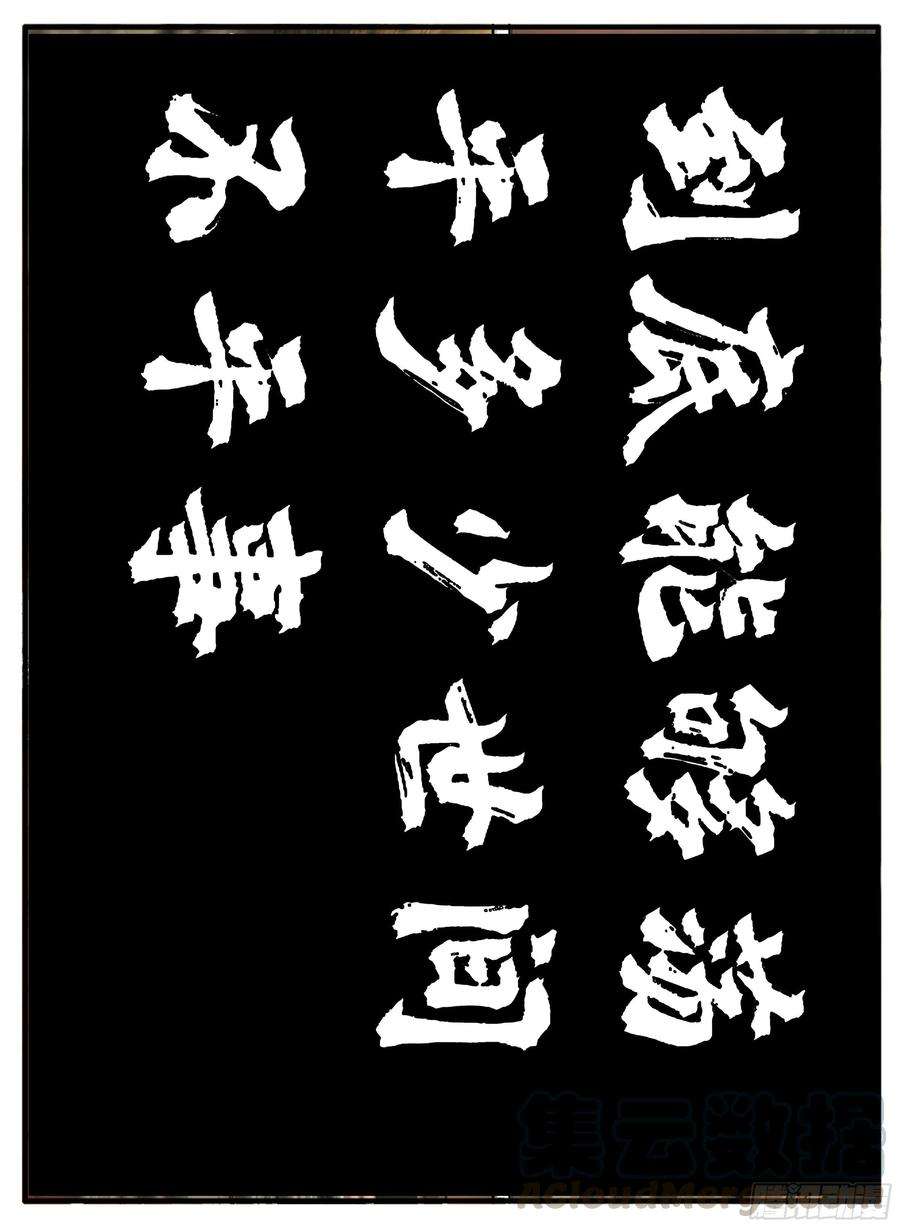 到底能够荡
平多少世间
不平事
集云数据
ACloudMerge.com
腾讯动漫